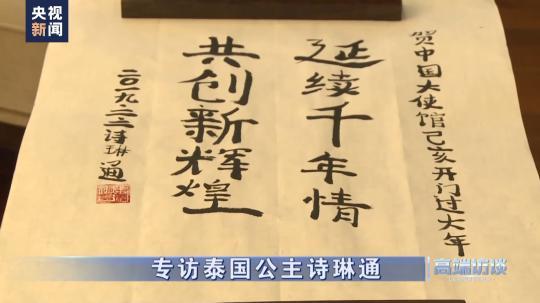 央视
新闻
贺中国大使馆己亥开门过大年
延续千年情
共创新辉煌
二〇一九.二.二诗琳通
专访泰国公主诗琳通
高端访谈